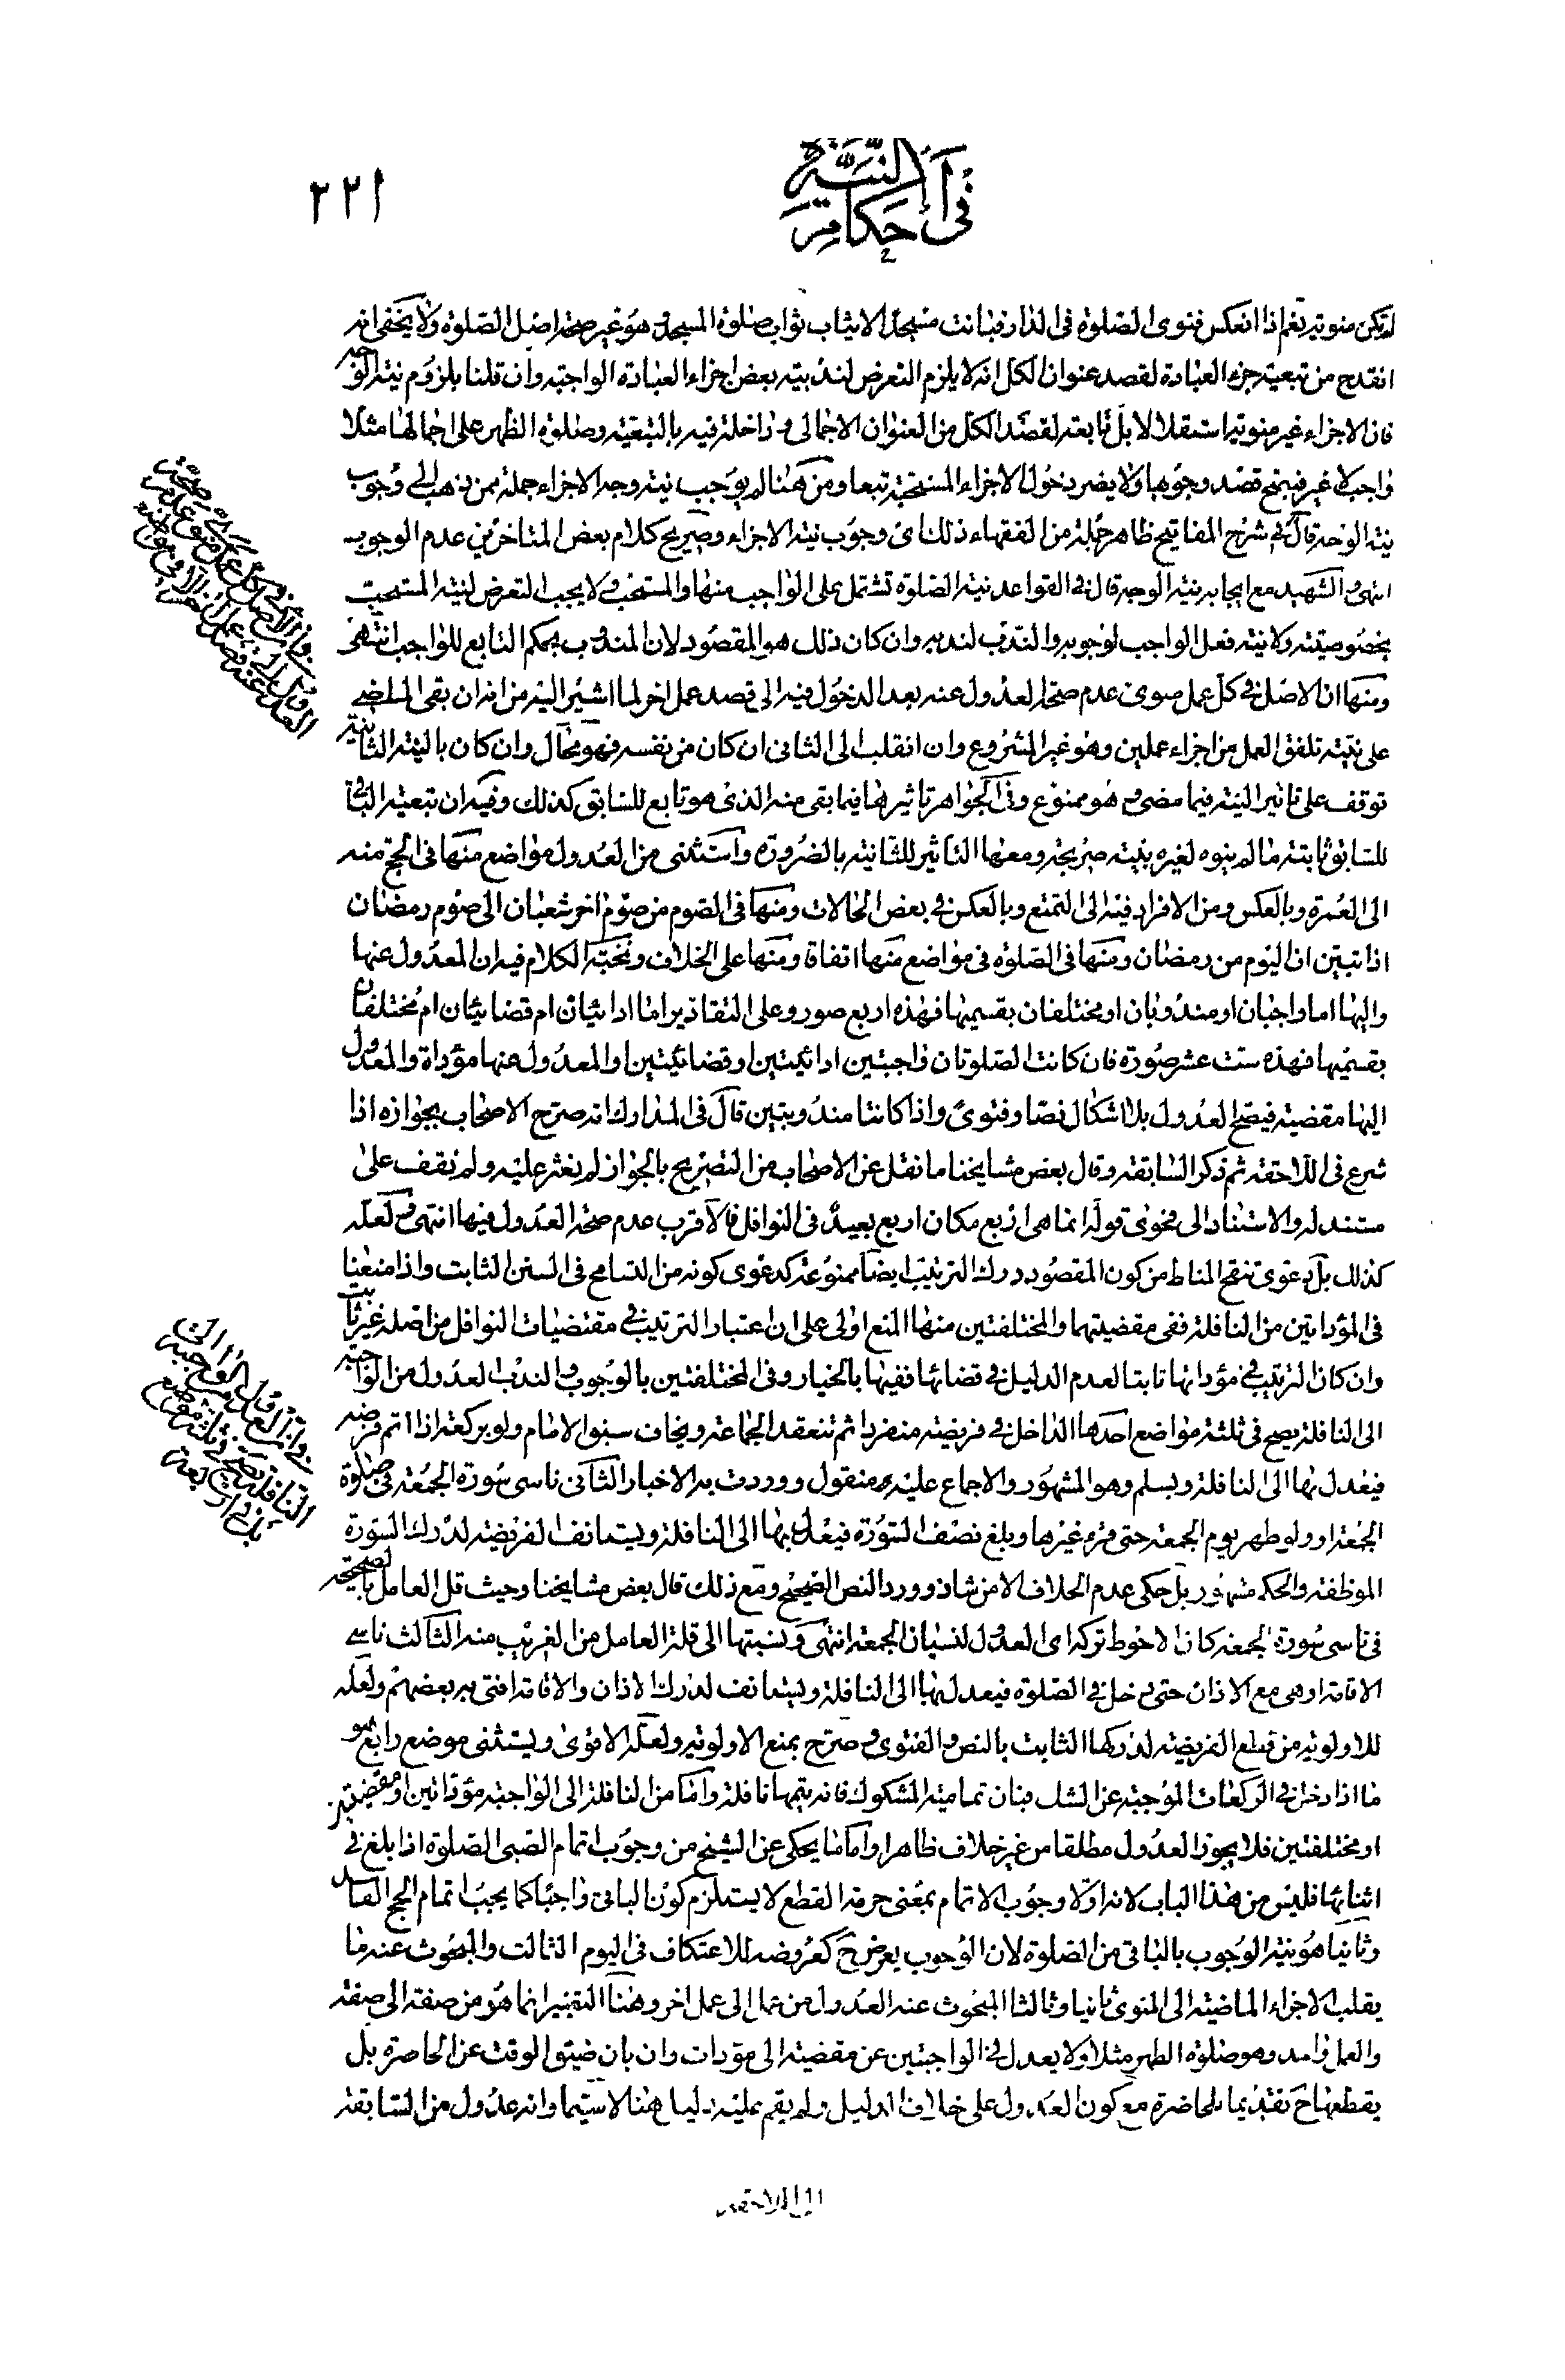 في أحكام النية
٢٢١
لم تكن منويته نعم اذا انعكس فنوى الصلوة في الدار فبانت مسجدا لا يثاب ثواب صلوة المسجد وهو غير صحة اصل الصلوة ولا يخفى انه
انقدح من تبعية جزء العبادة لقصد عنوان الكل انه لا يلزم التعرض لندبية بعض اجزاء العبادة الواجبة وان قلنا بلزوم نية الوجه
فان الاجزاء غير منوية استقلالا بل تابعة لقصد الكل من العنوان الاجمالي وداخلة فيه بالتبعية وصلوة الظهر على اجمالها مثلا
واجب لا غير فيصح قصد وجوبها ولا يضر دخول الاجزاء المستحبة تبعا ومن هنا لم يوجب نية وجه الاجزاء جملة ممن ذهب الى وجوب
نية الوجه قال في شرح المفاتيح ظاهر جملة من الفقهاء ذلك اى وجوب نية الاجزاء وصريح كلام بعض المتاخرين عدم الوجوب
انتهى والشهيد مع ايجابه نية الوجه قال في القواعد نية الصلوة تشتمل على الواجب منها والمستحب ولا يجب التعرض لنية المستحب
بخصوصيته ولا نية فعل الواجب لوجوبه والندب لندبه وان كان ذلك هو المقصود لان المندوب بحكم التابع للواجب انتهى
ومنها ان الاصل في كل عمل منوى عدم صحة العدول عنه بعد الدخول فيه الى قصد عمل اخر لما اشير اليه من انه ان بقى الماضي
على نيته تلفق العمل من اجزاء عملين وهو غير المشروع وان انقلب الى الثانى ان كان من نفسه فهو محال وان كان بالنية الثانية
توقف على تاثير النية فيما مضى وهو ممنوع وفي الجواهر تاثيرها فيما بقى منه الذى هو تابع للسابق كذلك وفيه ان تبعية الباقي
للسابق ثابتة ما لم ينوه لغيره بنية صريحة ومعها التأثير للثانية بالضرورة واستثنى من العدول مواضع منها في الحج منه
الى العمرة وبالعكس ومن الافراد فيه الى التمتع وبالعكس في بعض الحالات ومنها في الصوم من صوم اخر شعبان الى صوم رمضان
اذا تبين ان اليوم من رمضان ومنها في الصلوة في مواضع منها اتفاقا ومنها على الخلاف ونخبة الكلام فيه ان المعدول عنها
واليها اما واجبان او مندوبان او مختلفان بقسميها فهذه اربع صور وعلى التقادير اما ادائيان ام قضائيان ام مختلفان
بقسميها فهذه ست عشر صورة فان كانت الصلوتان واجبتين ادائيتين او قضائيتين او المعدول عنها مؤداة والمعدول
اليها مقضية فيصح العدول بلا اشكال نصا وفتوى واذا كانتا مندوبتين قال في المدارك انه صرح الاصحاب بجوازه اذا
شرع في اللاحقة ثم ذكر السابقة وقال بعض مشايخنا ما نقل عن الاصحاب من التصريح بالجواز لم نعثر عليه ولم نقف على
مستند له والاستناد الى فحوى قوله انما هى اربع مكان اربع بعيد في النوافل فالاقرب عدم صحة العدول فيها انتهى ولعله
كذلك بل دعوى تنقح المناط من كون المقصود درك الترتيب ايضا ممنوعة كدعوى كونه من التسامح في السنن الثابت واذا منعنا
في المؤداتين من النافلة ففى مقضيتهما والمختلفتين منها المنع اولى على ان اعتبار الترتيب في مقتضيات النوافل من اصله غير ثابت
وان كان الترتيب في مؤداتها ثابتا لعدم الدليل في قضائها ففيها بالخيار وفي المختلفتين بالوجوب والندب العدول من الواجبة
الى النافلة يصح في ثلثة مواضع احدها الداخل في فريضة منفردا ثم تنعقد الجماعة ويخاف سبق الامام ولو بركعة اذا اتم فرضه
فيعدل بها الى النافلة ويسلم وهو المشهور والاجماع عليه منقول ووردت به الاخبار الثانى ناسى سورة الجمعة في صلوة
الجمعة او ولو ظهر يوم الجمعة حتى قرء غيرها وبلغ نصف السورة فيعدل بها الى النافلة ويستانف الفريضة لدرك السورة
الموظفة والحكم مشهور بل حكى عدم الخلاف الا من شاذ وورد النص الصحيح ومع ذلك قال بعض مشايخنا وحيث قل العامل بالصحيحة
في ناسى سورة الجمعة كان الاحوط تركه اى العدول لنسيان الجمعة انتهى ونسبتها الى قلة العامل من الغريب منه الثالث ناسي
الاقامة او هى مع الاذان حتى دخل في الصلوة فيعدل بها الى النافلة ويستانف لدرك الاذان والاقامة افتى به بعضهم ولعله
للاولوية من قطع الفريضة لدركها الثابت بالنص والفتوى وصرح بمنع الاولوية ولعله الاقوى ويستثنى موضع رابع هو
ما اذا دخل في الركعات الموجبة عن الشك فبان تمامية المشكوك فانه يتمها نافلة واما من النافلة الى الواجبة مؤداتين او مقضيتين
او مختلفتين فلا يجوز العدول مطلقا من غير خلاف ظاهر واما ما يحكى عن الشيخ من وجوب اتمام الصبى الصلوة اذا بلغ في
اثنائها فليس من هذا الباب لانه اولا وجوب الاتمام بمعنى حرمة القطع لا يستلزم كون الباقى واجبا كما يجب اتمام الحج الفاسد
وثانيا هو بنية الوجوب بالباقى من الصلوة لان الوجوب يعرض ح كعروضه للاعتكاف في اليوم الثالث والمبحوث عنه ما
يقلب الاجزاء الماضية الى المنوى ثانيا وثالثا المبحوث عنه العدول من عمل الى عمل اخر وهنا التغيير انما هو من صفة الى صفة
والعمل واحد وهو صلوة الظهر مثلا ولا يعدل في الواجبتين عن مقضية الى مؤدات وان بان ضيق الوقت عن الحاضرة بل
يقطعها ح تقديما للحاضرة مع كون العدول على خلاف الدليل ولم يقم عليه دليل هنا لا سيما وانه عدول من السابقة
الى اللاحقة